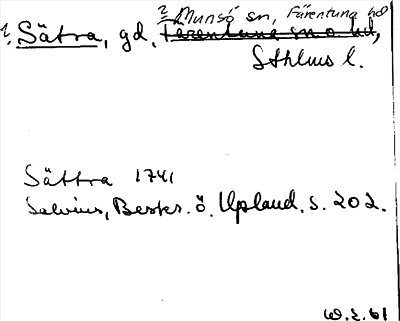 2 Munsö sn, Färentuna hd
1, Sätra, gd, Färentuna sn o hd,
Sthlms l.
Sättra 1741
Salvius, Beskr. ö. Upland. s. 202.
W.E. 61